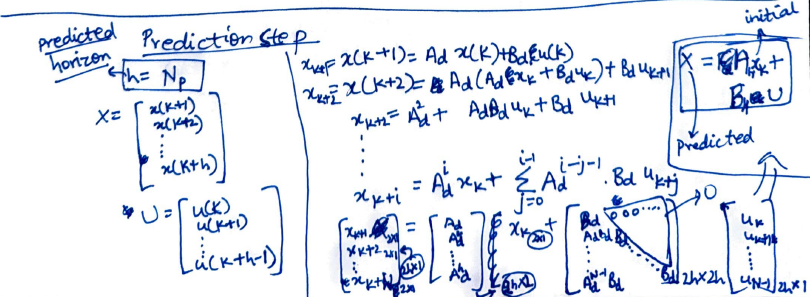 Predicted horizon
Prediction step
h = Np
X = [x(k+1) x(k+2) ⋮ x(k+h)]
U = [u(k) u(k+1) ⋮ u(k+h-1)]
x_{k+1} = x(k+1) = A_d x(k) + B_d u(k)
x_{k+2} = x(k+2) = A_d (A_d x_k + B_d u_k) + B_d u_{k+1}
x_{k+2} = A_d^2 + A_d B_d u_k + B_d u_{k+1}
⋮
x_{k+i} = A_d^i x_k + Σ_{j=0}^{i-1} A_d^{i-j-1} . B_d u_{k+j}
[x_{k+1} 2x1 x_{k+2} 2x1 ⋮ x_{k+h} 2x1] 2h×1 = [A_d A_d^2 ⋮ A_d^h] 2h×2 x_k 2x1 + [B_d 0 0 ... A_d B_d ⋮ A_d^{N-1} B_d B_d] 2h×2h [u_k u_{k+1} ⋮ u_{N-1}] 2h×1
→ 0
initial
X = A_h x_k +
B_h U
Predicted